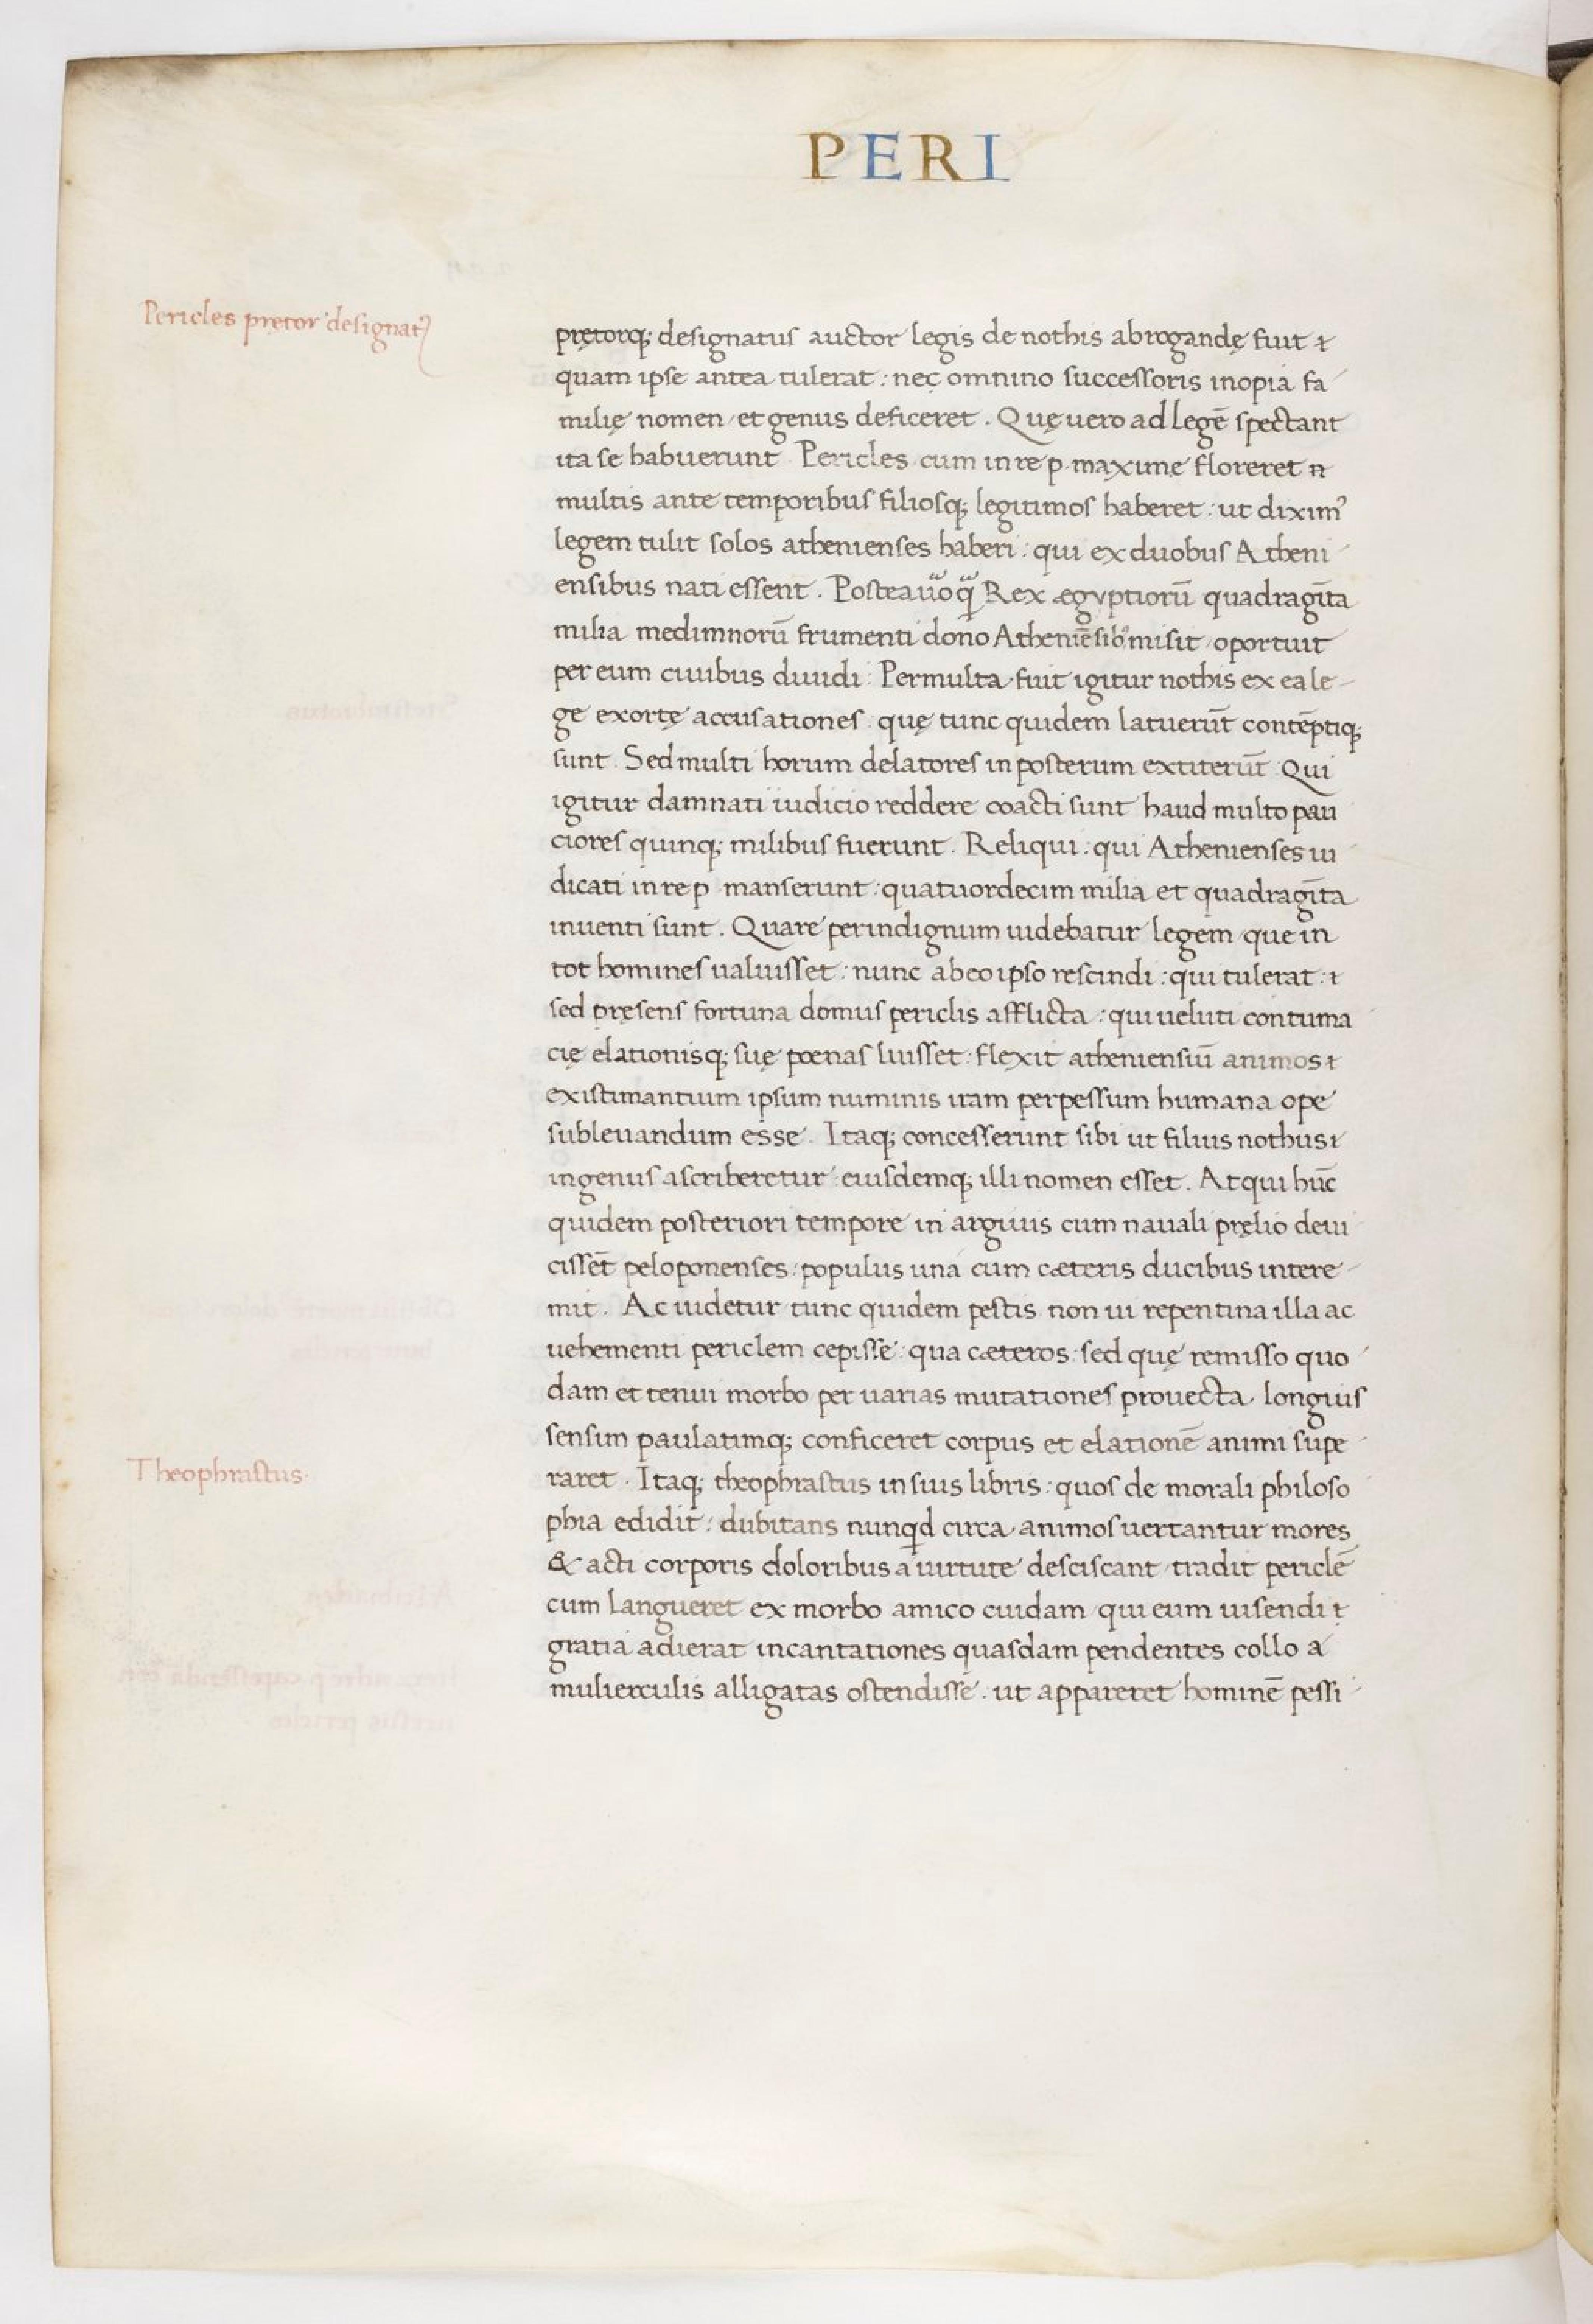 PERI
Pericles prętor designatꝰ
prętorq; designatus auctor legis de nothis abrogandę fuit
quam ipse antea tulerat: nec omnino successoris inopia fa
milię nomen et genus deficeret. Quę uero ad legē spectant
ita se habuerunt. Pericles cum in re p. maxime floreret
multis ante temporibus filiosq; legitimos haberet: ut diximꝰ
legem tulit solos athenienses haberi: qui ex duobus Atheni
ensibus nati essent. Postea Rex ægyptiorū quadragīta
milia medimnorū frumenti dono Atheniēsibꝰ misit oportuit
per eum ciuibus diuidi: Permulta fuit igitur nothis ex ea le
ge exortę accusationes quę tunc quidem latuerūt contēptiq;
sunt. Sed multi horum delatores in posterum extiterūt. Qui
igitur damnati iudicio reddere coacti sunt haud multo pau
ciores quinq; milibus fuerunt. Reliqui: qui Athenienses iu
dicati in re p. manserunt: quatuordecim milia et quadragīta
inuenti sunt. Quare perindignum uidebatur legem que in
tot homines ualuisset: nunc ab eo ipso rescindi: qui tulerat:
sed pręsens fortuna domus periclis afflicta: qui ueluti contuma
cię elationisq; suę poenas luisset: flexit atheniensiū animos
existimantium ipsum numinis iram perpessum humana ope
subleuandum esse. Itaq; concesserunt sibi ut filius nothus
ingenus ascriberetur: eiusdemq; illi nomen esset. Atqui hūc
quidem posteriori tempore in arginis cum nauali pręlio deui
cissēt peloponenses: populus una cum cæteris ducibus intere
mit. Ac uidetur tunc quidem pestis non ui repentina illa ac
uehementi periclem cepisse: qua cæteros: sed quę remisso quo
dam et tenui morbo per uarias mutationes prouecta longius
sensim paulatimq; conficeret corpus et elationē animi supe
Theophrastus.
raret. Itaq; theophrastus in suis libris: quos de morali philoso
phia edidit: dubitans nunqd circa animos uertantur mores
& acti corporis doloribus a uirtute desciscant tradit periclē
cum langueret ex morbo amico cuidam qui eum uisendi
gratia adierat incantationes quasdam pendentes collo a
mulierculis alligatas ostendisse. ut appareret hominē pessi